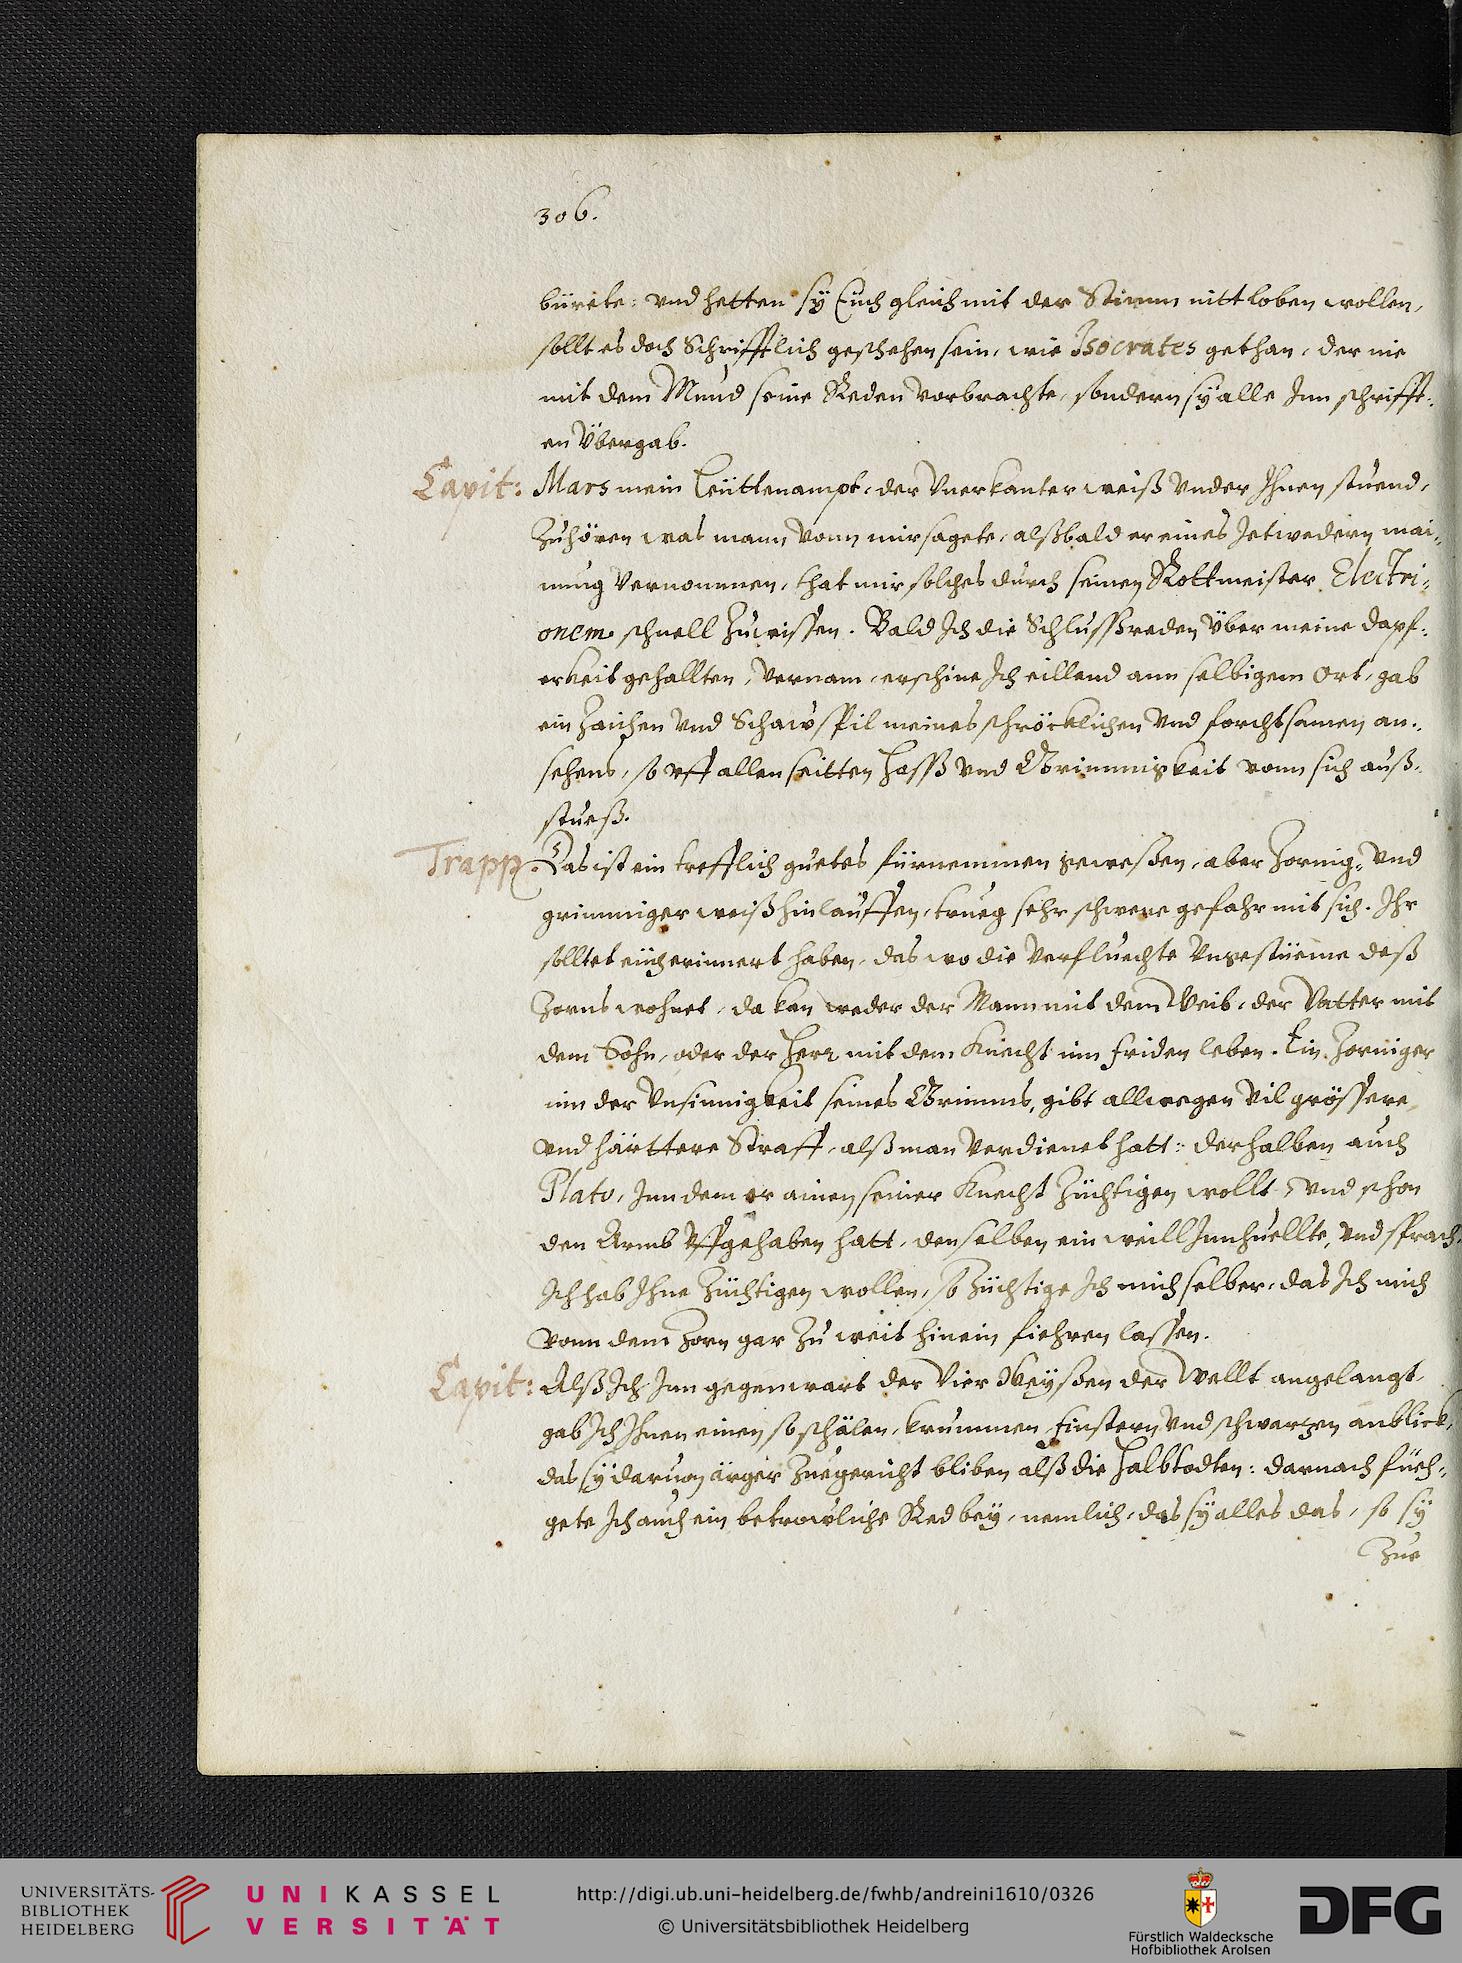 306.
bürete: vnd hetten sÿ Euch gleich mit der Stimm nitt loben wollen,
sollt es doch Schrifftlich geschehen sein, wie Isocrates gethan, der nie
mit dem Mund seine Reden vorbrachte, sondern sÿ alle Inn schrifft-
en Vbergab.
Capit: Mars mein Leüttenampt, der Vnerkanter weiß Vnder Ihnen stuend,
Zuhören was mann vonn mir sagete, alßbald er eines Jetwedern mai-
nung Vernommen, that mir solches durch seinen Rottmeister Electri-
onem schnell Zuwissen. Bald Ich die Schlussßreden Über meine dapf-
erkeit gehallten, Vernam, erschine Ich eillend ann selbigem Ort, gab
ein Zaichen Vnd Schawspil meines schröcklichen Vnd forchtsamen an-
sehens, so vff allen seitten Hasß Vnd Grimmigkeit vonn sich auß-
stueß.
Trapp. Das ist ein trefflich guetes fürnemmen gewesßen, aber Zornig- Vnd
grimmiger weiß hinlauffen, trueg sehr schwere gefahr mit sich. Ihr
solltet eüch erinnert haben, das wo die Verfluechte Vngestüeme deß
Zorns wohnet, da kan weder der Mann mit dem Weib, der Vatter mit
dem Sohn, oder der Herr mit dem Knecht inn friden leben. Ein Zorniger
inn der Vnsinnigkeit seines Grimms, gibt allwegen Vil grössere,
vnd härttere Straff, alß man Verdienet hatt: derhalben auch
Plato, Inn dem er ainen seiner Knecht Züchtigen wollt, Vnd schon
den Armb Vffgehaben hatt, denselben ein weill Innhuellte, Vnd sprach.
Ich hab Ihne Züchtigen wollen, so Züchtige Ich mich selber, das Ich mich
vonn dem Zorn gar Zu weit hinein fiehren lassen.
Capit: Alß Ich Inn gegenwart der Vier Weÿsßen der Wellt angelangt,
gab Ich Ihnen einen so schälen, krummen, finstern, Vnd schwarzen anblick,
das sÿ daruon ärger Zuegericht bliben alß die Halbtodten: darnach füeh-
gete Ich auch ein betrowliche Red bey, nemlich, das sÿ alles das, so sÿ
Zue
UNIVERSITÄTS-
BIBLIOTHEK
HEIDELBERG
UNIKASSEL
VERSITÄT
http://digi.ub.uni-heidelberg.de/fwhb/andreini1610/0326
© Universitätsbibliothek Heidelberg
Fürstlich Waldecksche
Hofbibliothek Arolsen
DFG